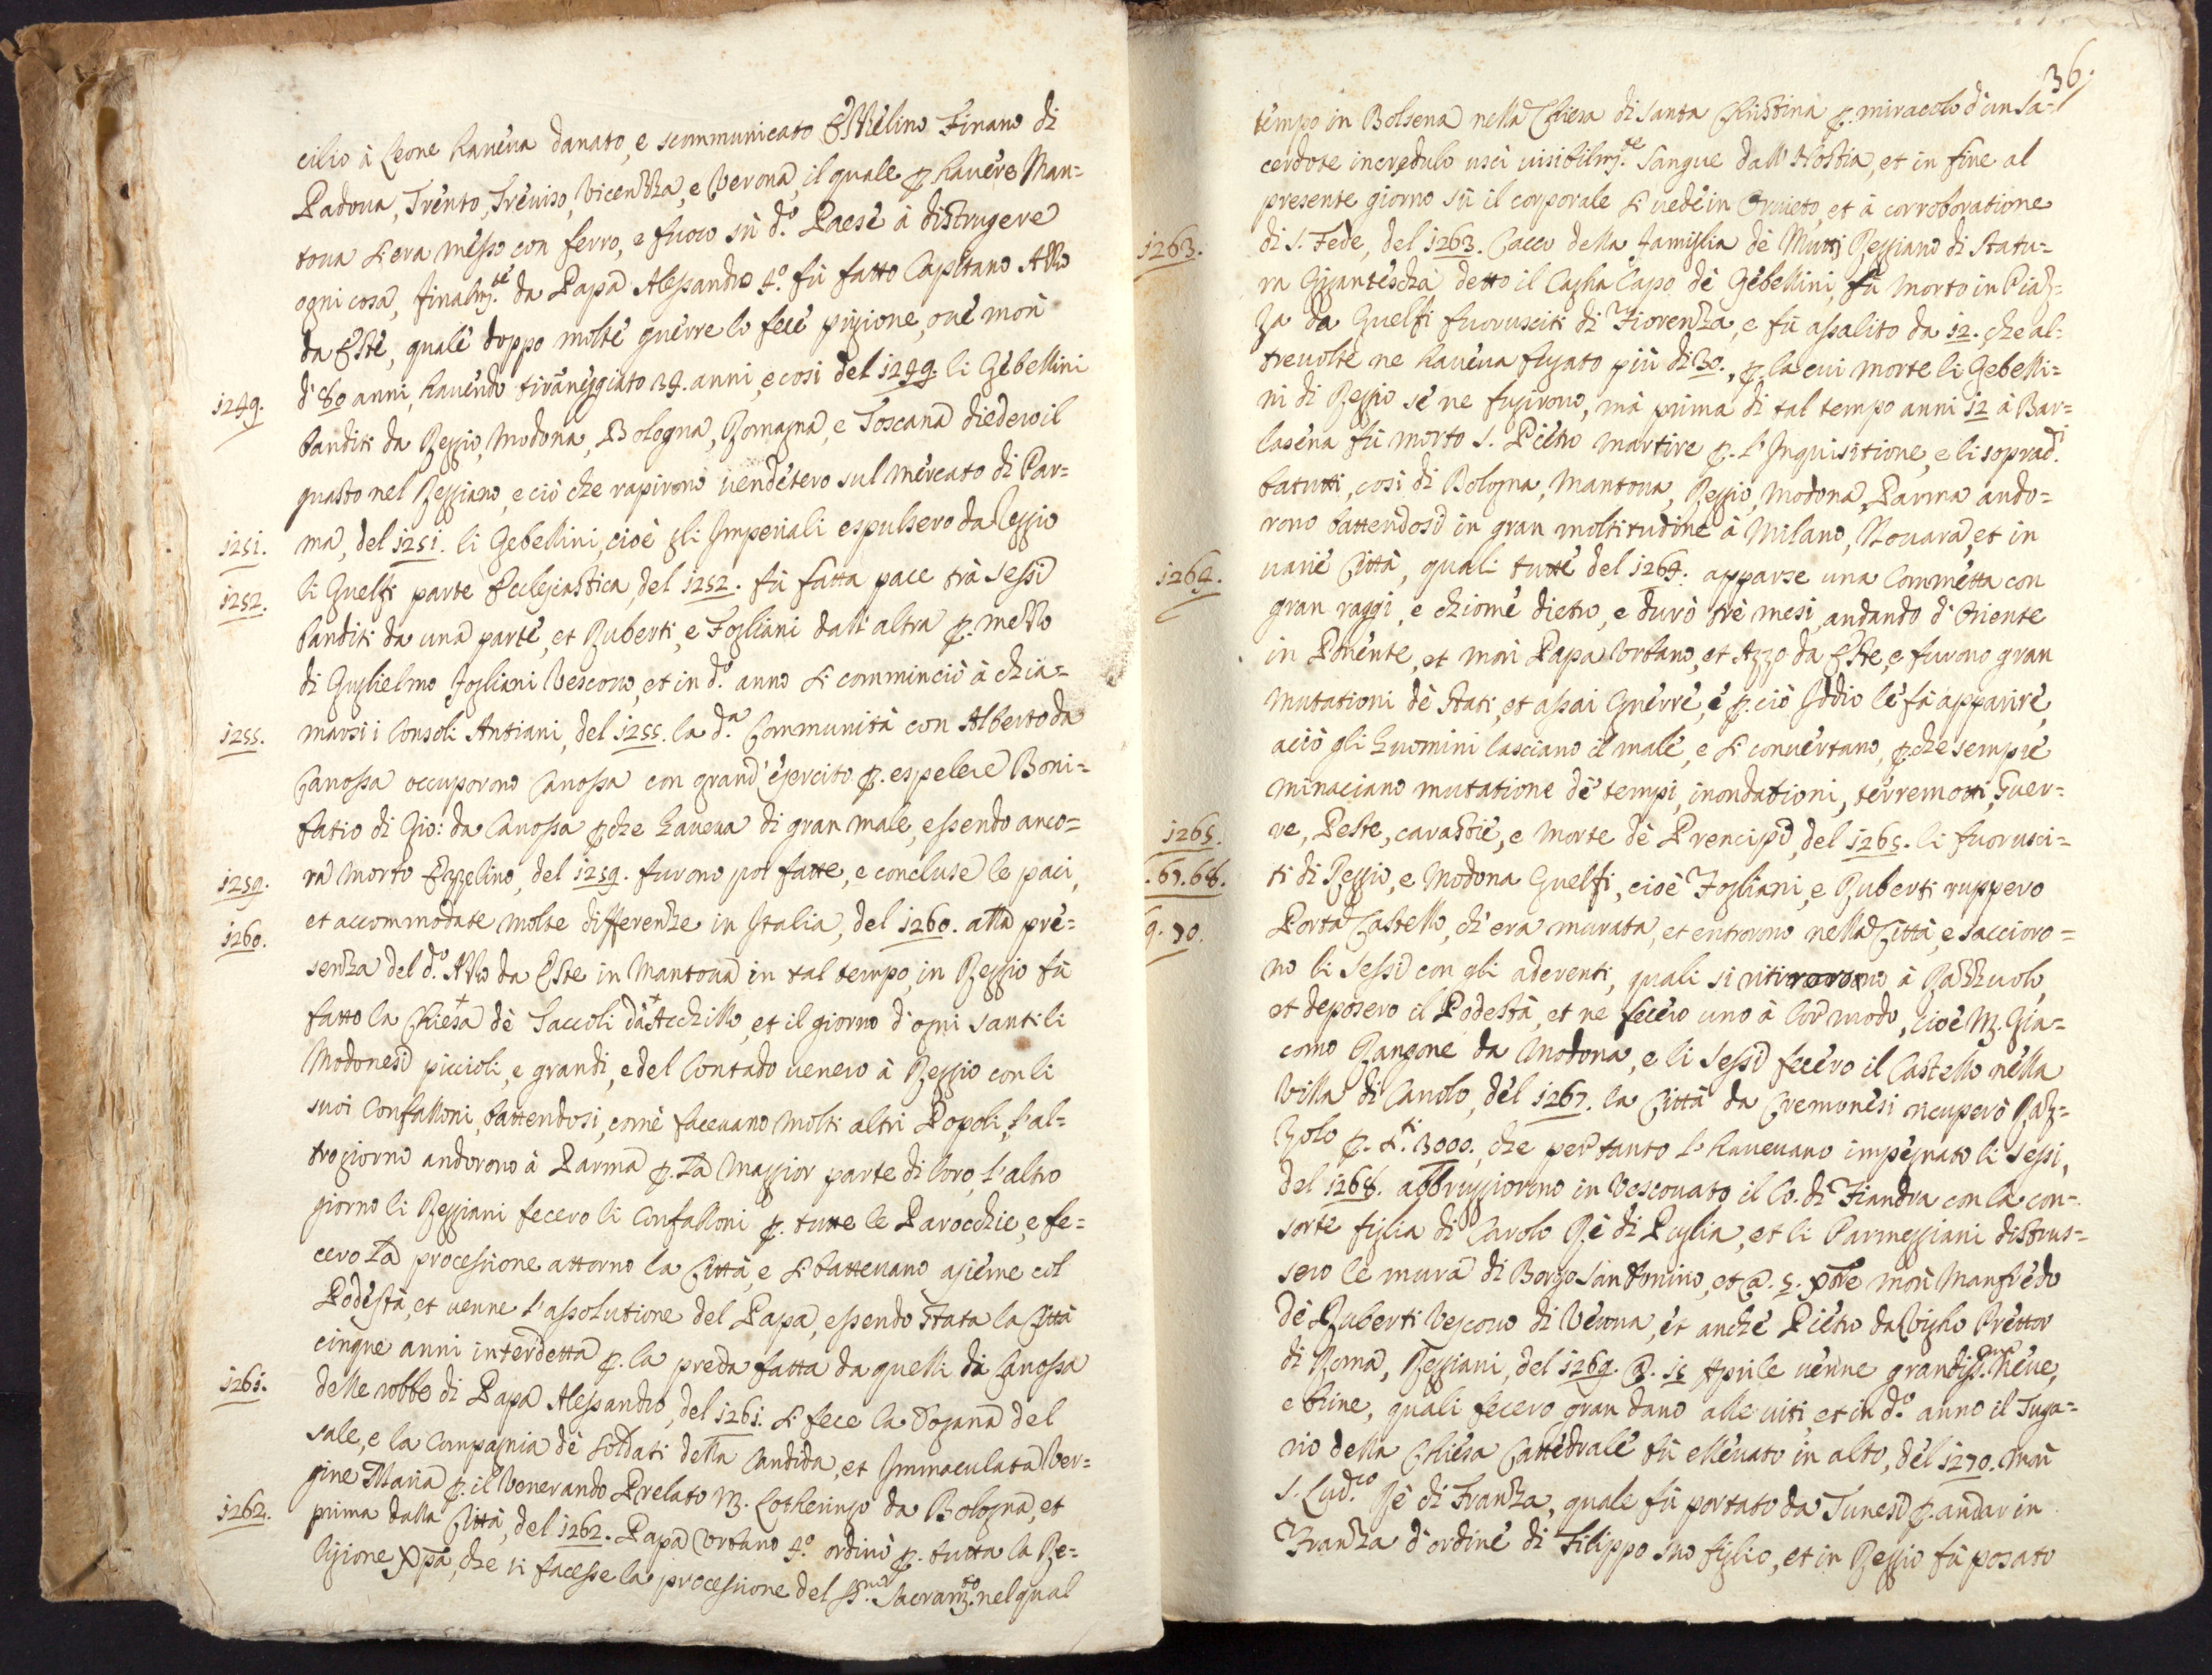 cilio à Leone haueua danato, e scommunicato Ezzelino Tirano di
Padoua, Trento, Treuiso, Vicenza, e Verona, il quale p. hauere Man=
toua si era messo con ferro, e fuoco sù d.º Paese à distrugere
ogni cosa, finalm.te da Papa Alessandro 4.º fù fatto Capitano Azzo
da Este, quale doppo molte guerre lo fece prigione, oue morì
1249. d'80 anni, hauendo tiraneggiato 34. anni, e così del 1249. li Gebellini
banditi da Reggio, Modona, Bologna, Romagna, e Toscana diedero il
guasto nel Reggiano, e ciò che rapirono uendetero sul mercato di Par=
1251. ma, del 1251. li Gebellini, cioè gli Imperiali espulsero da Reggio
1252. li Guelfi parte Ecclesiastica, del 1252. fù fatta pace trà Sessi
banditi da una parte, et Ruberti, e Fogliani dall'altra p. mezzo
di Guglielmo Fogliani Vescouo, et in d.º anno si comminciò à chia=
1255. marsi i Consoli Antiani, del 1255. la d.a Communità con Alberto da
Canossa occuporono Canossa con grand'esercito p. espelere Boni=
fatio di Gio: da Canossa pche haueua di gran male, essendo anco=
1259. ra morto Ezzelino, del 1259. furono poi fatte, e concluse le paci,
1260. et accommodate molte differenze in Italia, del 1260. alla pre=
senza del d.º Azzo da Este in Mantoua in tal tempo, in Reggio fù
fatto la Chiesa dè Saccoli dà Acchillo, et il giorno d'ogni santi li
Modonesi piccioli, e grandi, e del Contado uenero à Reggio con li
suoi Confalloni, battendosi, come faceuano molti altri Popoli, l'al=
tro giorno andorono à Parma p. la maggior parte di loro, l'altro
giorno li Reggiani fecero li Confalloni p. tutte le Parocchie, e fe=
cero la processione attorno la Città, e si batteuano asieme col
Podestà, et uenne l'assolutione del Papa, essendo stata la Città
cinque anni interdetta p. la preda fatta da quelli di Canossa
1261. delle robbe di Papa Alessandro, del 1261. si fece la Dogana del
sale, e la Compagnia dè soldati della Candida, et Immaculata Ver=
gine Maria p. il Venerando Prelato M. Lotheringo da Bologna, et
1262. prima dalla Città, del 1262. Papa Vrbano 4.º ordinò p. tutta la Re=
ligione Xpa, che si facesse la processione del SS.mo Sacram.to nel qual
36.
tempo in Bolsena nella Chiesa di santa Christina p. miracolo d'un Sa=
cerdote incredulo uscì uisibilm.te sangue dall'Hostia, et in fine al
presente giorno sù il corporale si uede in Oruieto, et à corroboratione
1263. di S. Fede, del 1263. Cacco della famiglia dè Mutti Reggiano di Statu=
ra Gigantescha detto il Cagha Capo dè Gebellini, fù morto in Piaz=
za da Guelfi fuorusciti di Fiorenza, e fù assalito da 12. che al=
treuolte ne haueua fugato più di 30., p. la cui morte li Gebelli=
ni di Reggio se ne fugirono, mà prima di tal tempo anni 12 à Bar=
lasena fù morto S. Pietro martire p. l'Inquisitione, e li soprad.i
batutti, così di Bologna, Mantoua, Reggio, Modona, Parma ando=
rono battendosi in gran moltitudine à Milano, Nouara, et in
1264. uarie Città, quali tutte del 1264. apparse una Commetta con
gran raggi, e chiome dietro, e durò trè mesi, andando d'Oriente
in Ponente, et morì Papa Vrbano, et Azzo da Este, e furono gran
mutationi dè Stati, et assai Guerre, e p. ciò Iddio le fà apparire,
aciò gli huomini lasciano il male, e si conuertano, pche sempre
minaciano mutatione dè tempi, inondationi, terremotti, Guer=
1265. re, Peste, carastie, e morte dè Prencipi, del 1265. li fuorusci=
.67.68. ti di Reggio, e Modona Guelfi, cioè Fogliani, e Ruberti ruppero
9.70. Porta Castello, ch'era murata, et entrorono nella Città, e sacciaro=
no li Sessi con gli aderenti, quali si ritirorono à Razzuolo,
et deposero il Podestà, et ne fecero uno à lor modo, cioè M. Gia=
como Rangone da Modona, e li Sessi fecero il Castello nella
Villa di Canolo, del 1267. la Città da Cremonesi ricuperò Raz=
zolo p. s.ti 3000., che per tanto l'haueuano impegnato li Sessi,
del 1268. abbruggiorno in Vescouato il Co. di Fiandra con la con=
sorte figlia di Carolo Rè di Puglia, et li Parmeggiani distrus=
sero le mura di Borgo San Donino, et @. 5. xbre morì Manfredo
dè Ruberti Vescouo di Verona, et anche Pietro da Vigho Prettor
di Roma, Reggiani, del 1269. @. 15 Aprile uenne grandiss.ma neue,
e brine, quali fecero gran dano alle uiti, et in d.º anno il Suga=
rio della Chiesa Cattedrale fù elleuato in alto, del 1270. morì
S. Lud.co Rè di Franza, quale fù portato da Tunesi p. andar in
Franza d'ordine di Filippo suo figlio, et in Reggio fù posato